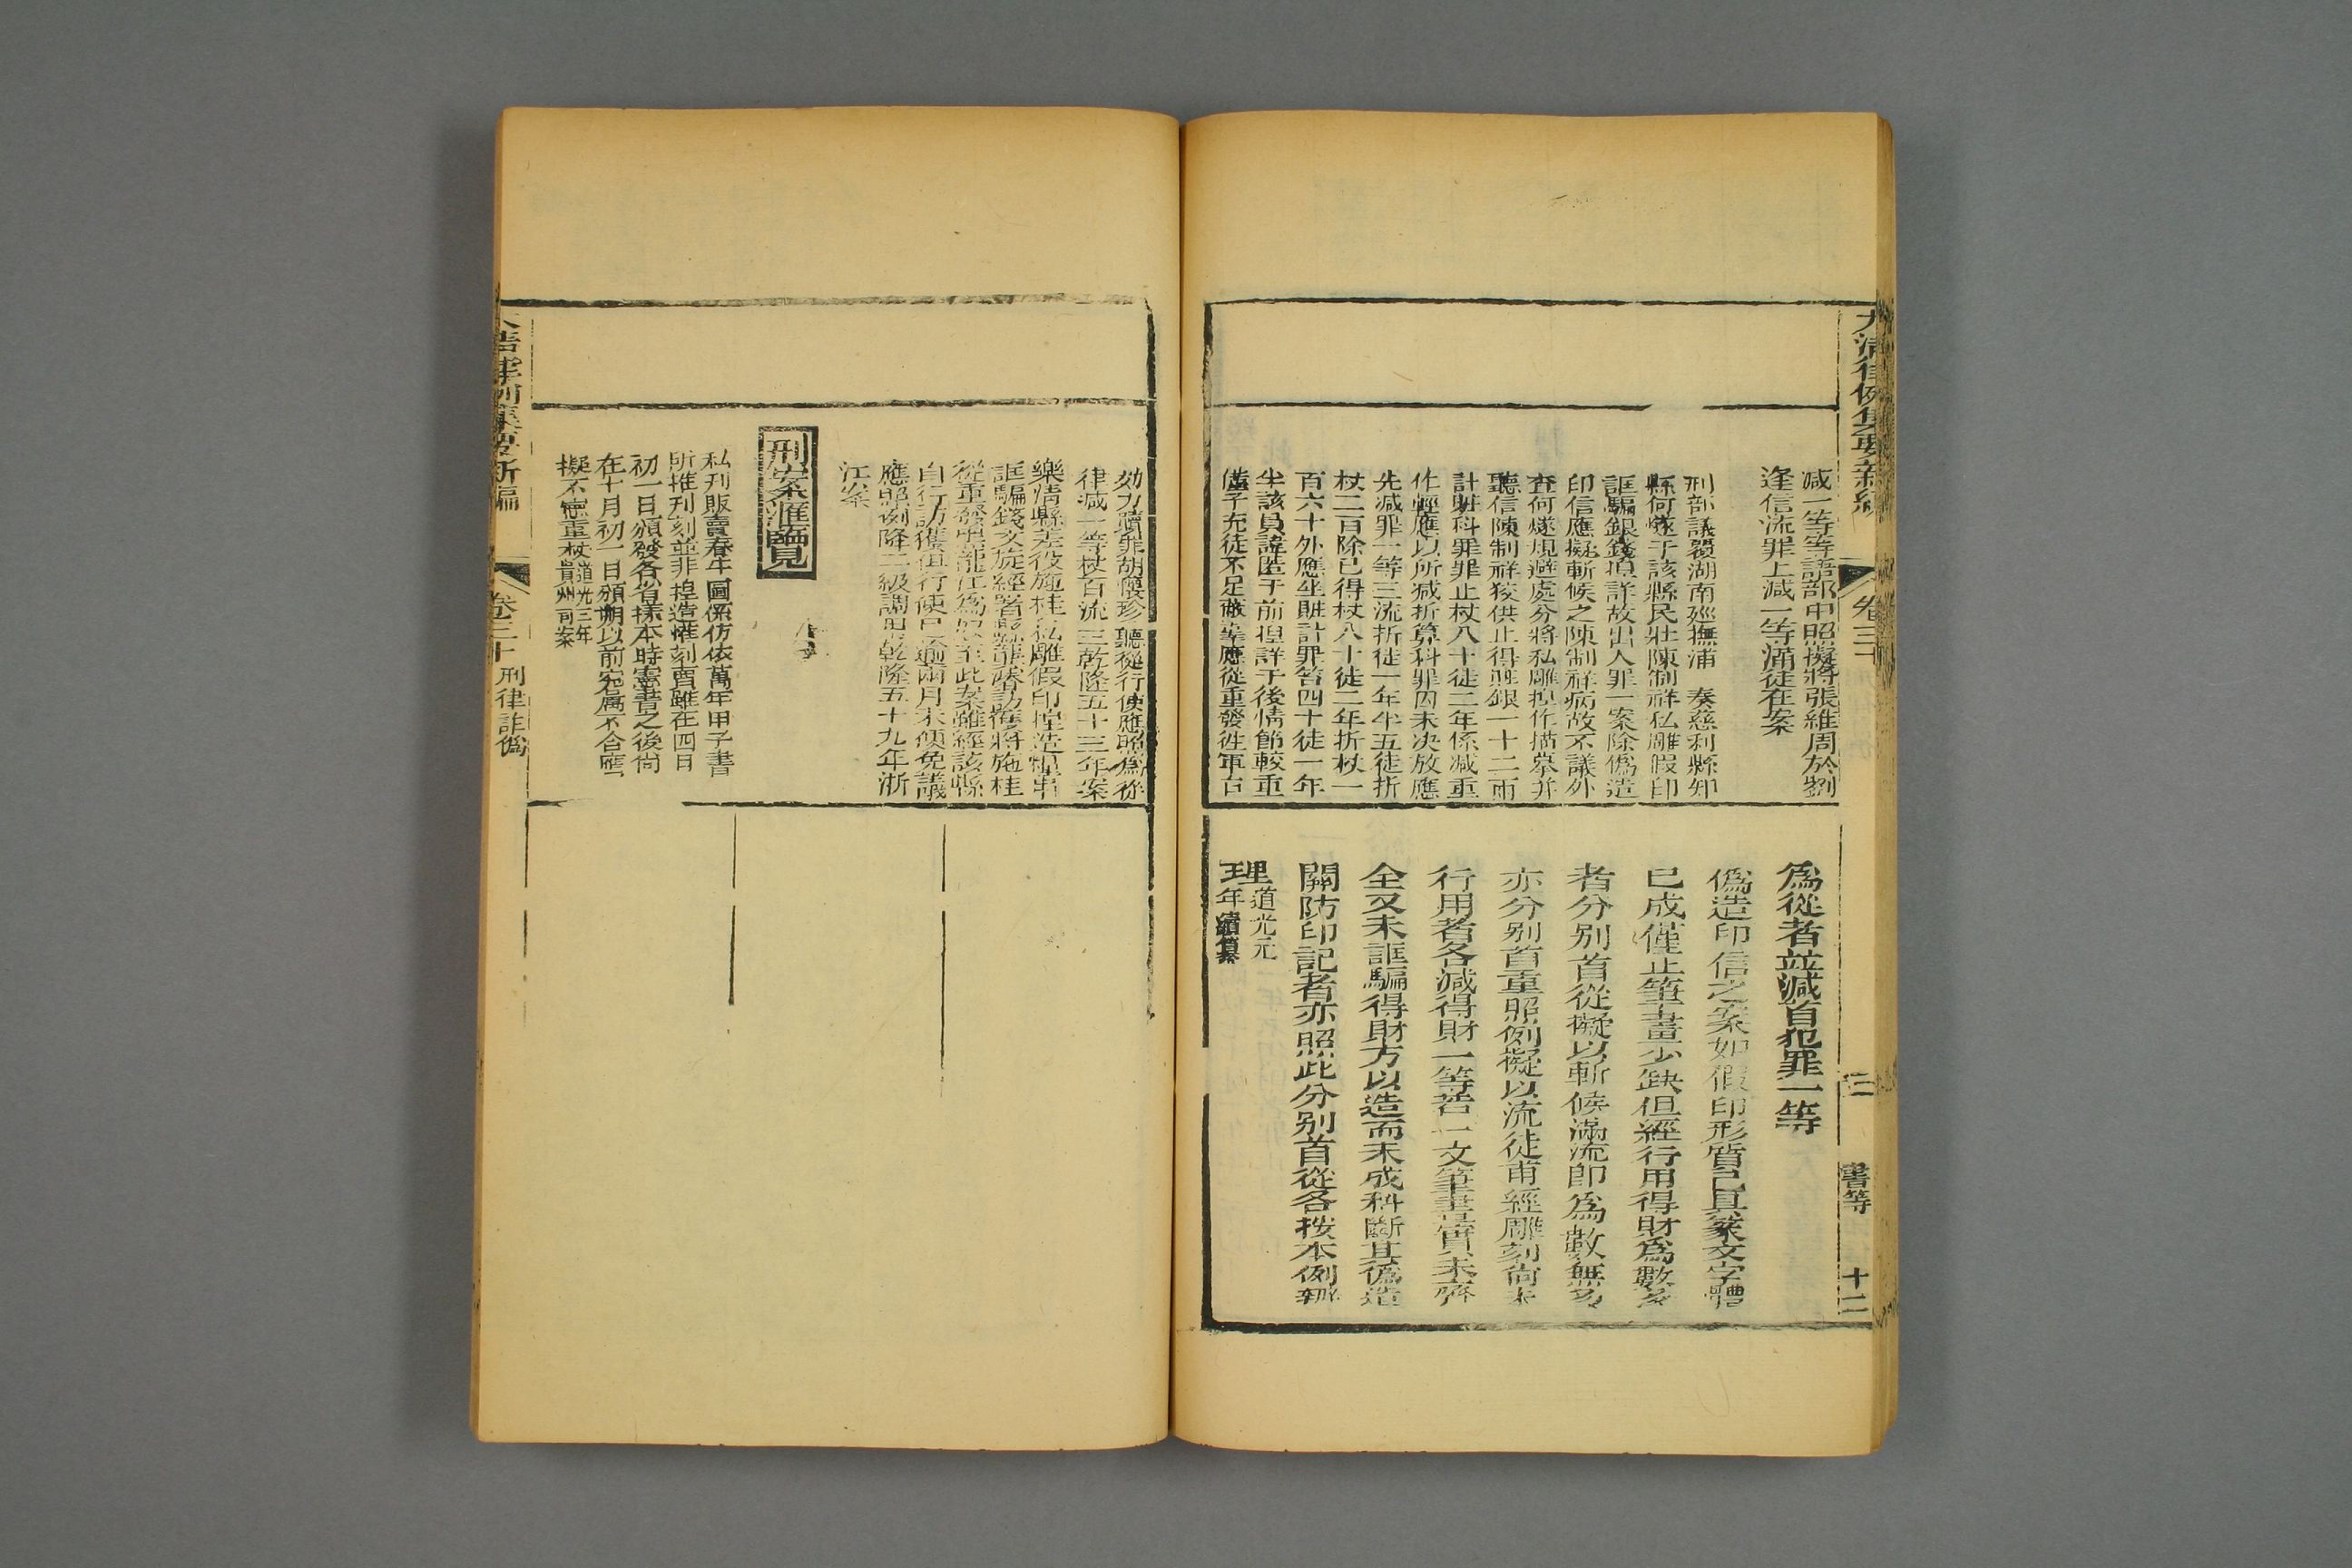 大清律例集要新編
卷三十
書等
十二
減一等等語部中照擬將張維周於劉
逢信流罪上減一等滿徒在案
刑部議覆湖南廵撫浦 奏慈利縣知
縣何燧于該縣民壯陳制祥私雕假印
誆騙銀錢揑詳故出入罪一案除僞造
印信應擬斬候之陳制祥病故不議外
查何燧規避處分將私雕揑作描摹并
聽信陳制祥狡供止得賍銀一十二兩
計賍科罪罪止杖八十徒二年係減重
作輕應以所減折算科罪囚未决放應
先減罪一等三流折徒一年半五徒折
杖二百除已得杖八十徒二年折杖一
百六十外應坐賍計罪笞四十徒一年
坐該員諱匿于前揑詳于後情節較重
僅予充徒不足蔽辜應從重發徃軍台
爲從者並減首犯罪一等
僞造印信之案如假印形質已具篆文字體
已成僅止筆畫少缺但經行用得財爲數多
者分别首從擬以斬候滿流卽爲數無多
亦分别首從照例擬以流徒甫經雕刻尚未
行用者各減得財一等若一文筆畫實未齊
全又未誆騙得財方以造而未成科斷其僞造
關防印記者亦照此分别首從各按本例辦
理道光元
年續纂
効力贖罪胡懷珍聽從行使應照爲從
律減一等杖百流三乾隆五十三年案
樂清縣差役施桂私雕假印揑造串
誆騙錢文旋經署縣訪獲將施桂
從重發黑龍江爲奴至此案雖經該縣
自行訪獲但行使已逾兩月未便免議
應照例降二級調用乾隆五十九年浙
江案
刑案滙覽
私刊販賣春牛圖係仿依萬年甲子書
所推刊刻並非揑造惟刻賣雖在四月
初一日頒發各省樣本時憲書之後尙
在十月初一日頒朔以前究屬不合應
擬不應重杖道光三年
貴州司案
大清律例集要新編
卷三十
刑律詐僞